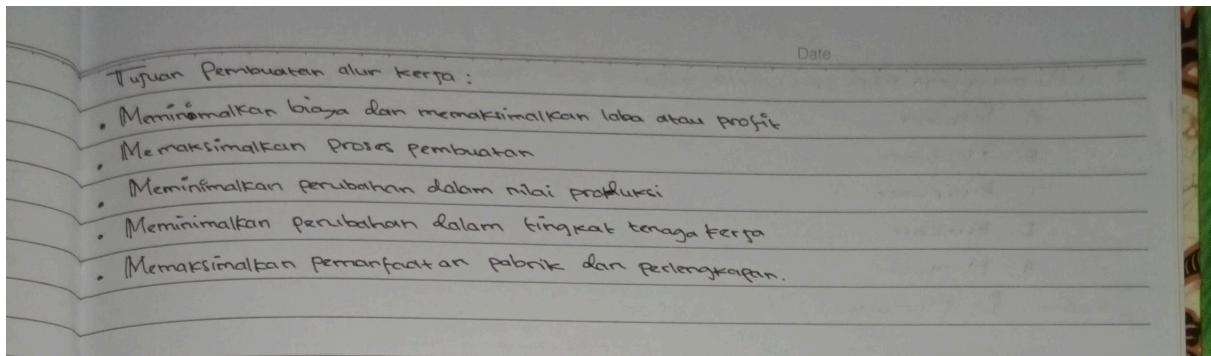 Date
Tujuan Pembuatan alur kerja :
• Meminimalkan biaya dan memaksimalkan laba atau profit
• Memaksimalkan proses pembuatan
• Meminimalkan perubahan dalam nilai produksi
• Meminimalkan perubahan dalam tingkat tenaga kerja
• Memaksimalkan pemanfaatan pabrik dan perlengkapan.